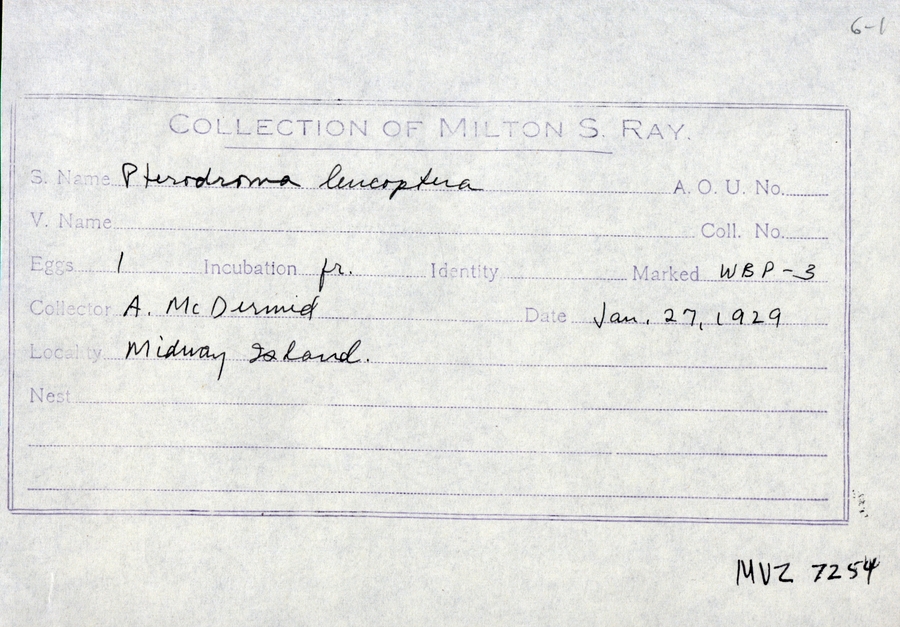 6-1
COLLECTION OF MILTON S. RAY.
S. Name Pterodroma leucoptera A. O. U. No.
V. Name Coll. No.
Eggs 1 Incubation fr. Identity Marked WBP-3
Collector A. McDermid Date Jan. 27, 1929
Locality Midway Island.
Nest
MVZ 7254